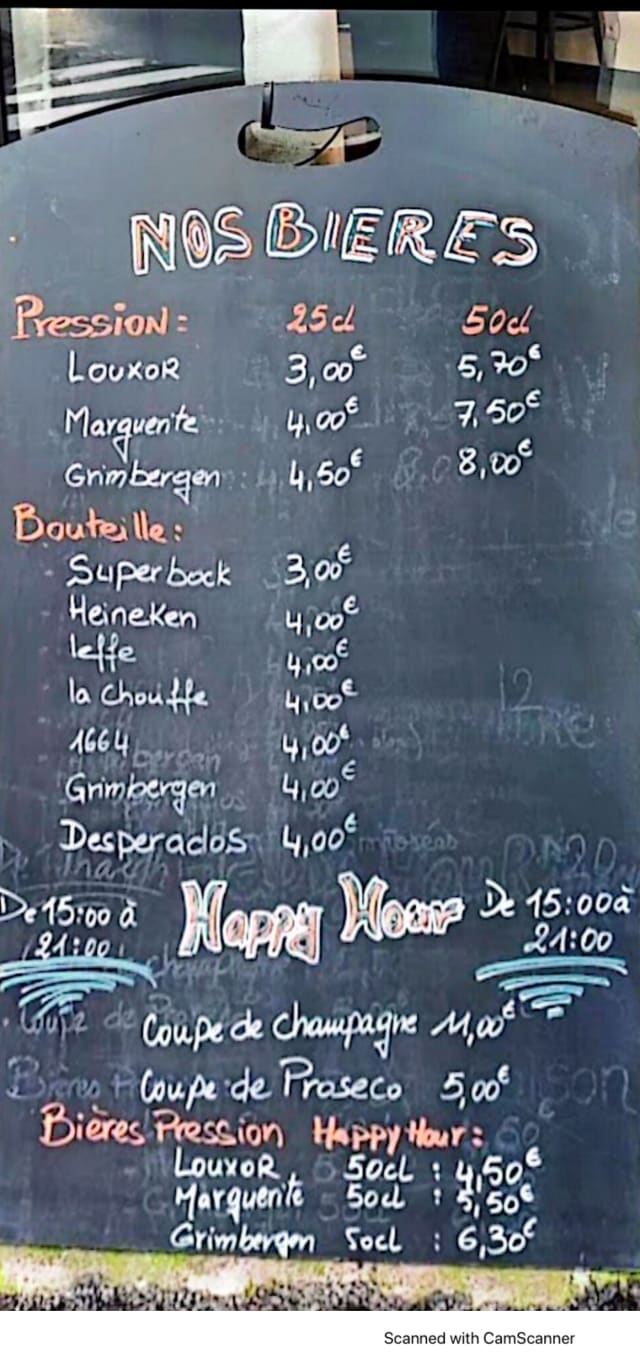 NOS BIERES
Pression: 25cl 50cl
Louxor 3,00€ 5,70€
Marguerite 4,00€ 7,50€
Grimbergen: 4,50€ 8,00€
Bouteille:
Superbock 3,00€
Heineken 4,00€
leffe 4,00€
la chouffe 4,00€
1664 4,00€
Grimbergen 4,00€
Desperados 4,00€
De 15:00 à 21:00 Happy Hour De 15:00 à 21:00
Coupe de champagne 11,00€
Coupe de Praseco 5,00€
Bières Pression Happy Hour:
Louxor 50cl : 4,50€
Marguerite 50cl : 5,50€
Grimbergen 50cl : 6,30€
Scanned with CamScanner